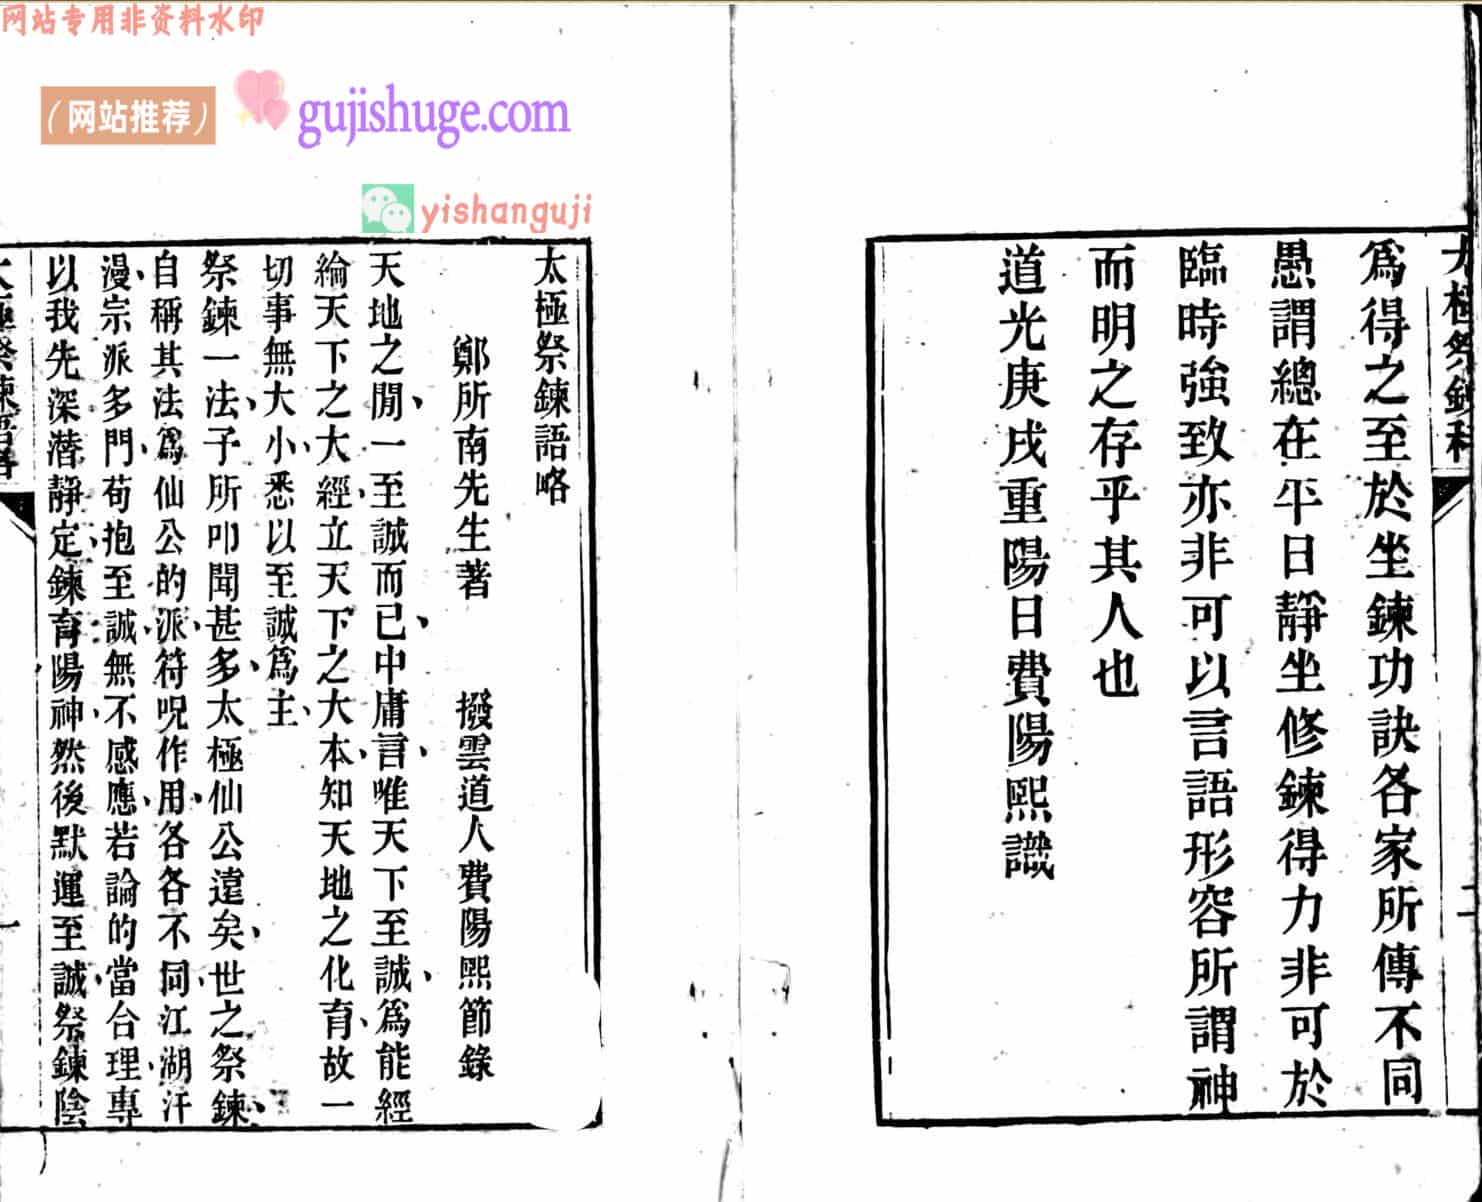 网站专用非资料水印
（网站推荐）
gujishuge.com
yishanguji
爲得之至於坐鍊功訣各家所傳不同
愚謂總在平日靜坐修鍊得力非可於
臨時強致亦非可以言語形容所謂神
而明之存乎其人也
道光庚戌重陽日費陽熙識
太極祭鍊語略
鄭所南先生著　撥雲道人費陽熙節錄
天地之閒一至誠而已中庸言唯天下至誠爲能經
綸天下之大經立天下之大本知天地之化育故一
切事無大小悉以至誠爲主
祭鍊一法子所叩聞甚多太極仙公遠矣世之祭鍊
自稱其法爲仙公的派符呪作用各各不同江湖汗
漫宗派多門苟抱至誠無不感應若論的當合理專
以我先深潛靜定鍊育陽神然後默運至誠祭鍊陰